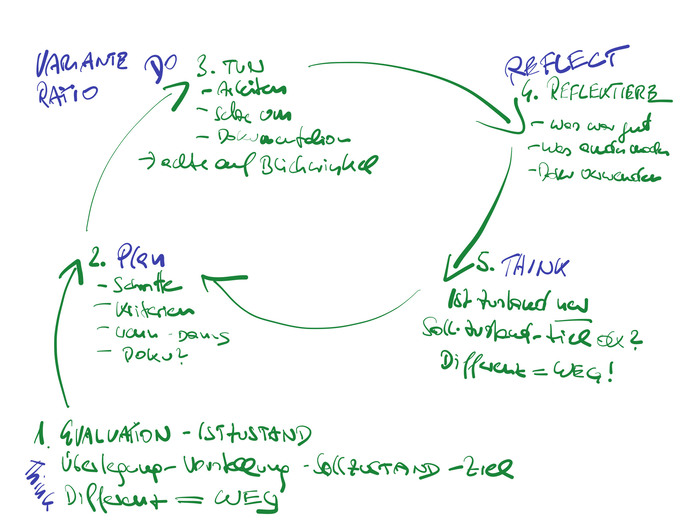 VARIANTE
RATIO
DO
3. TUN
- Arbeiten
- Setze um
- Dokumentation
→ achte auf Blickwinkel
REFLECT
4. REFLEKTIERE
- Was war gut
- Was anders machen
- Doku verwenden
5. THINK
Istzustand neu
Sollzustand - Ziel ok?
Different = WEG!
2. Plan
- Schritte
- Kriterien
- wenn - Danns
- Doku?
1. EVALUATION - ISTZUSTAND
Think
Überlegung - Vorstellung - SOLLZUSTAND - Ziel
Different = WEG